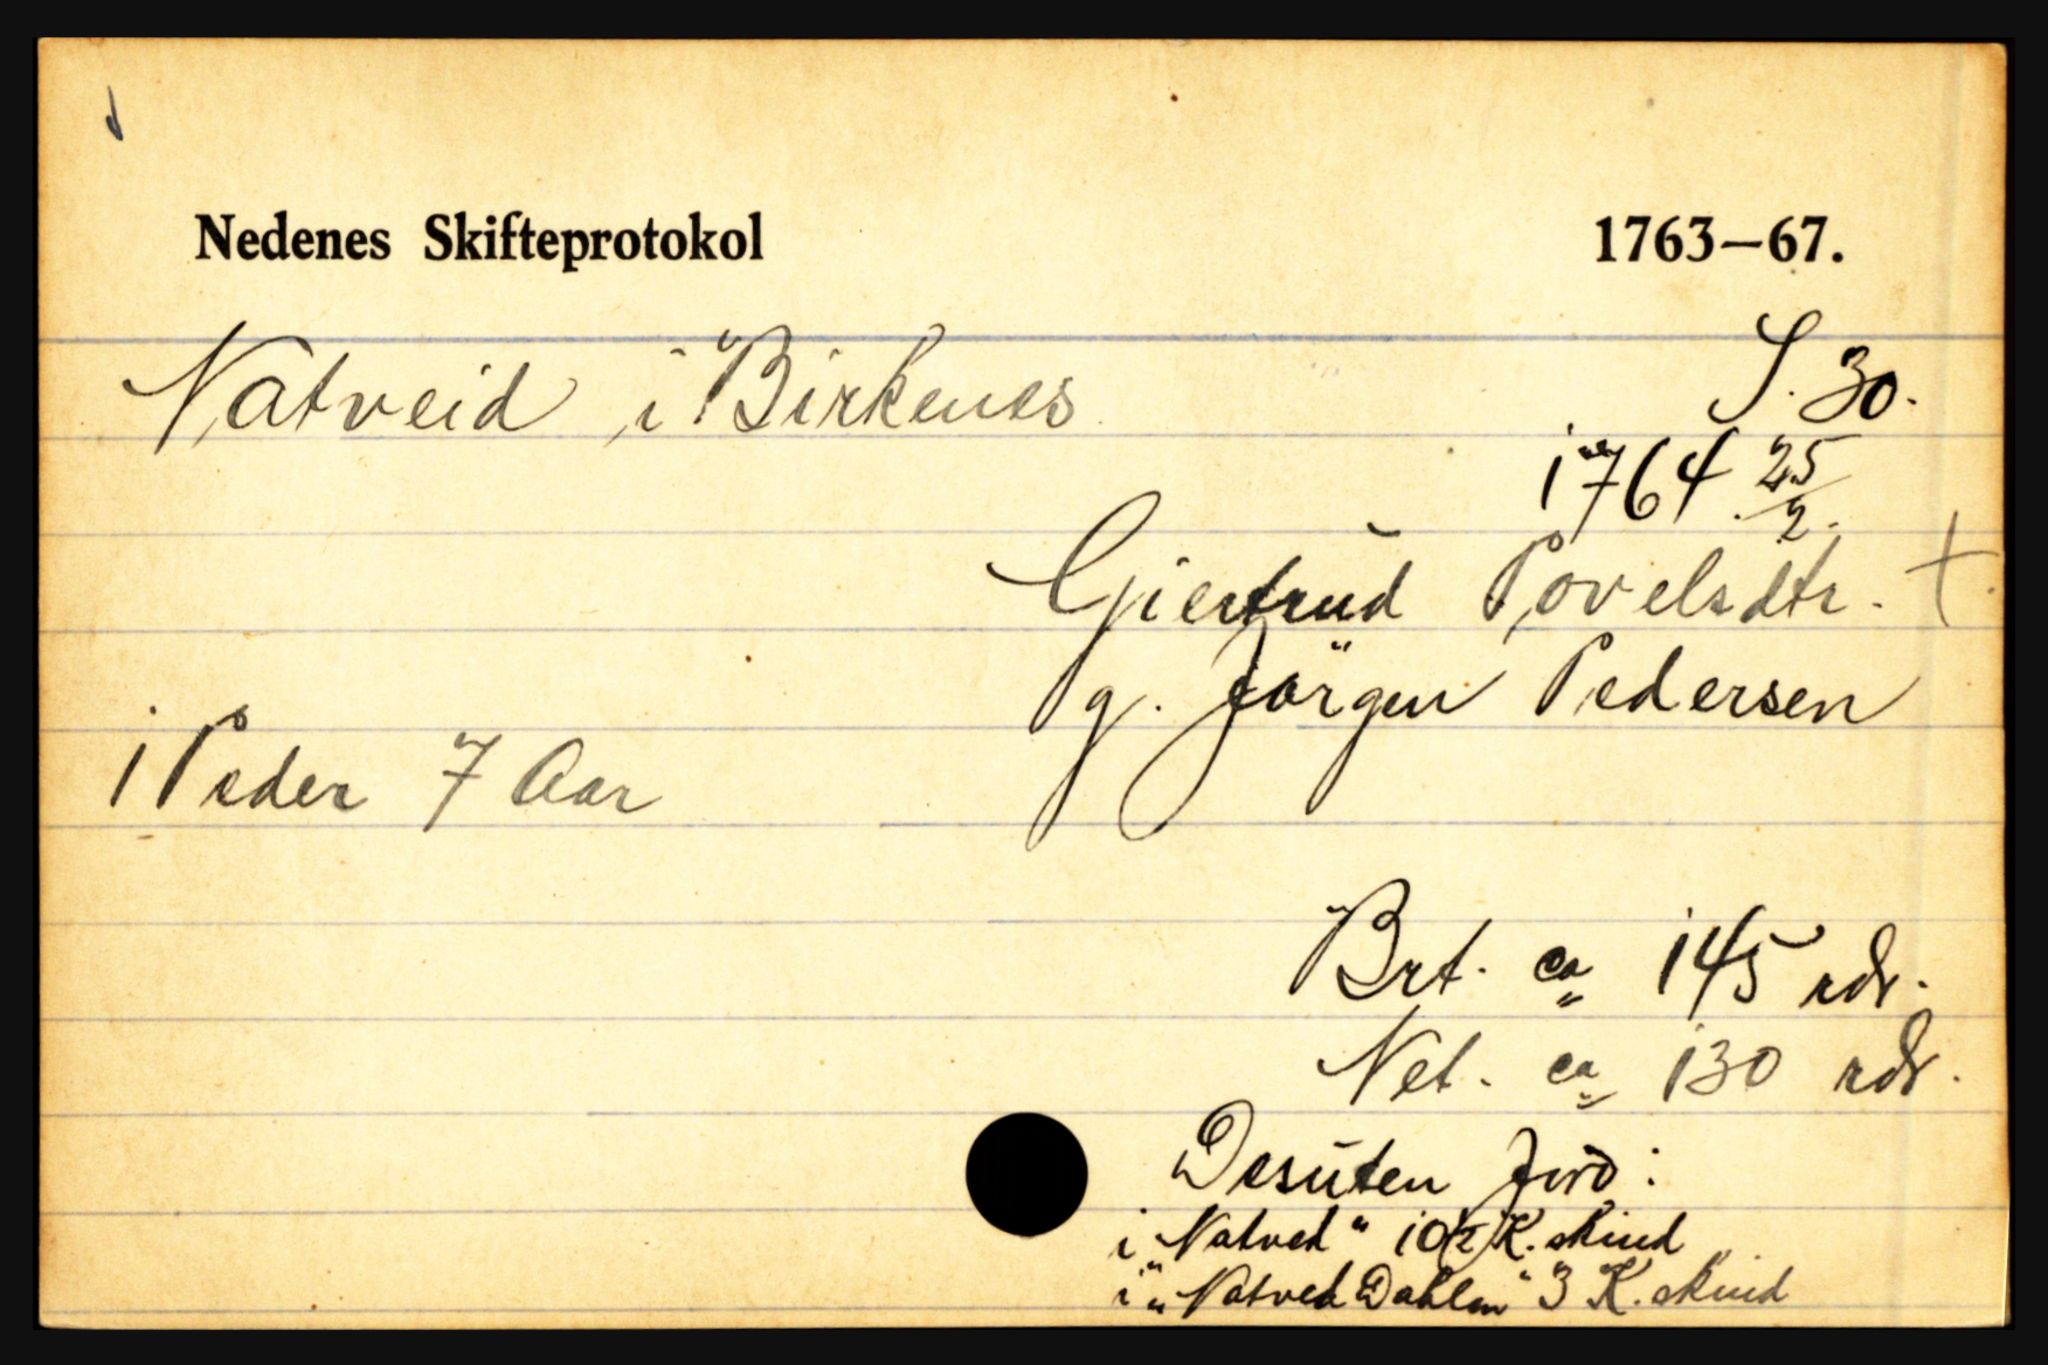 Nedenes Skifteprotokol 1763—67.
Natveid i Birkenes S. 30.
1764 25/2.
Gjertrud Povelsdtr. †.
g. Jörgen Pedersen
1 Peder 7 Aar
Brt. ca 145 rdr.
Net. ca 130 rdr.
Desuten Jord:
i "Natved" 10 1/2 K. skind
i "Natved Dahlen" 3 K. skind